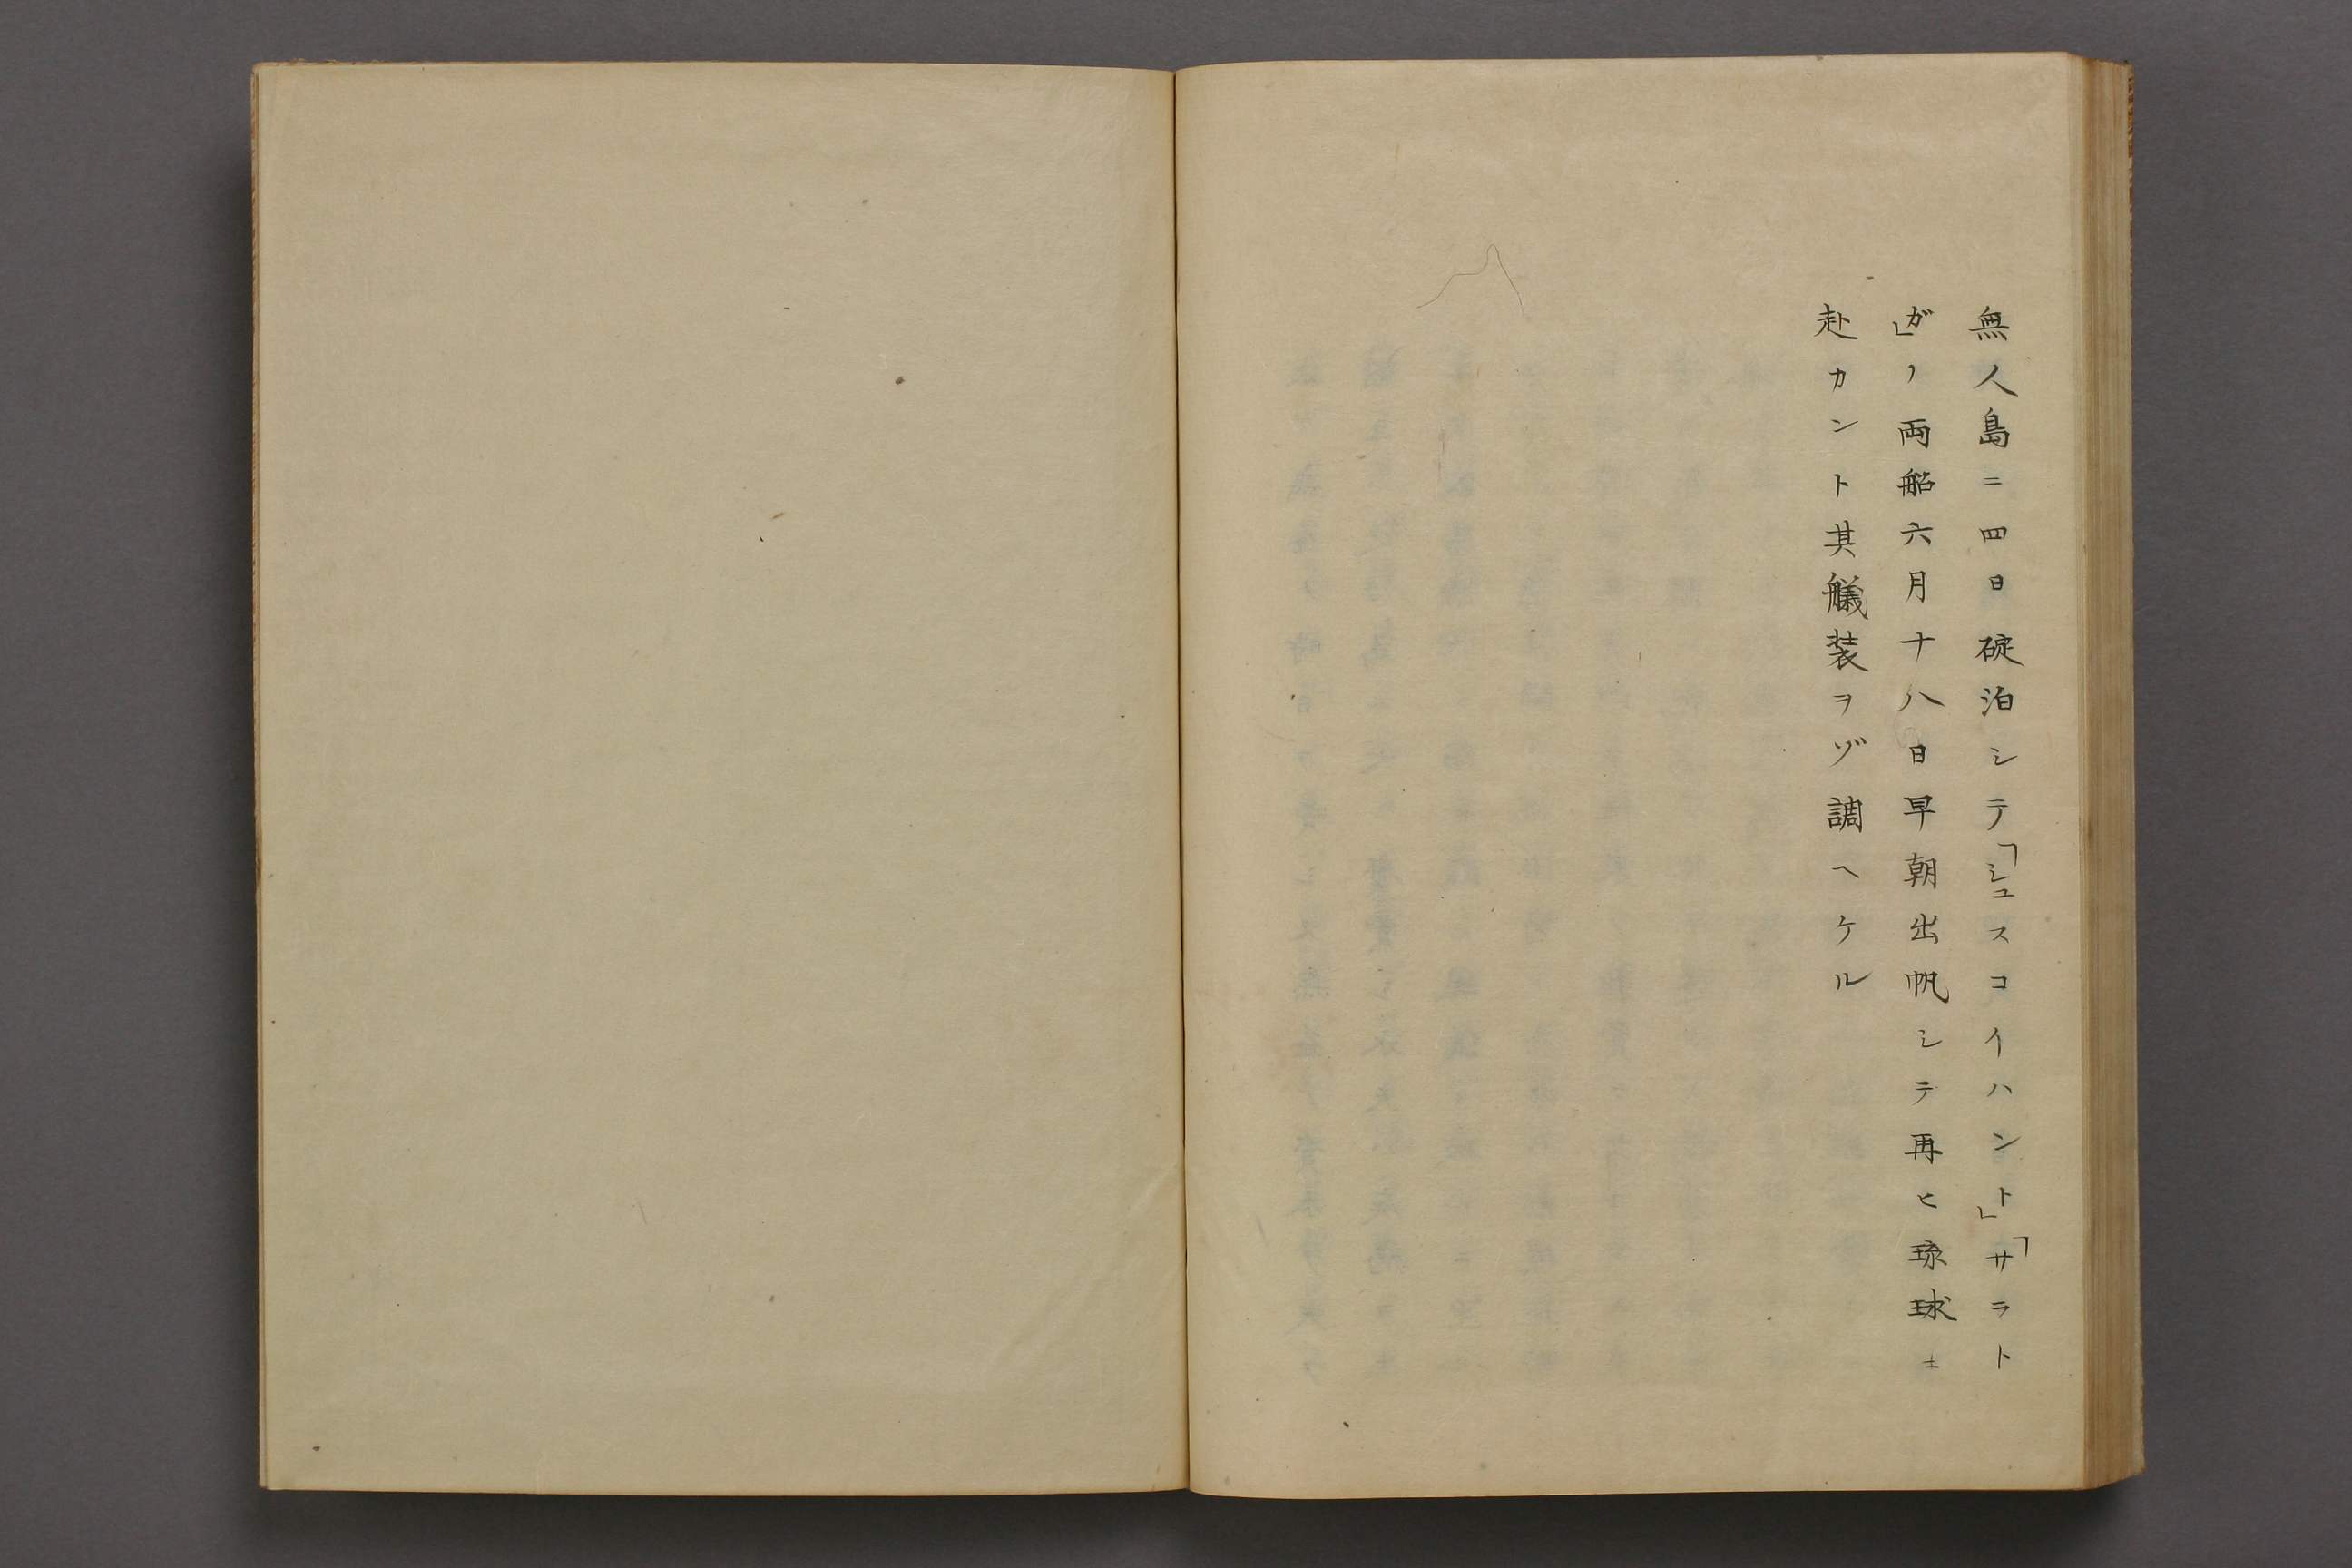 無人島ニ四日碇泊シテ「シユスコイハント」「サラト
ガ」ノ両船六月十八日早朝出帆シテ再ヒ琉球ニ
赴カント其艤装ヲゾ調ヘケル